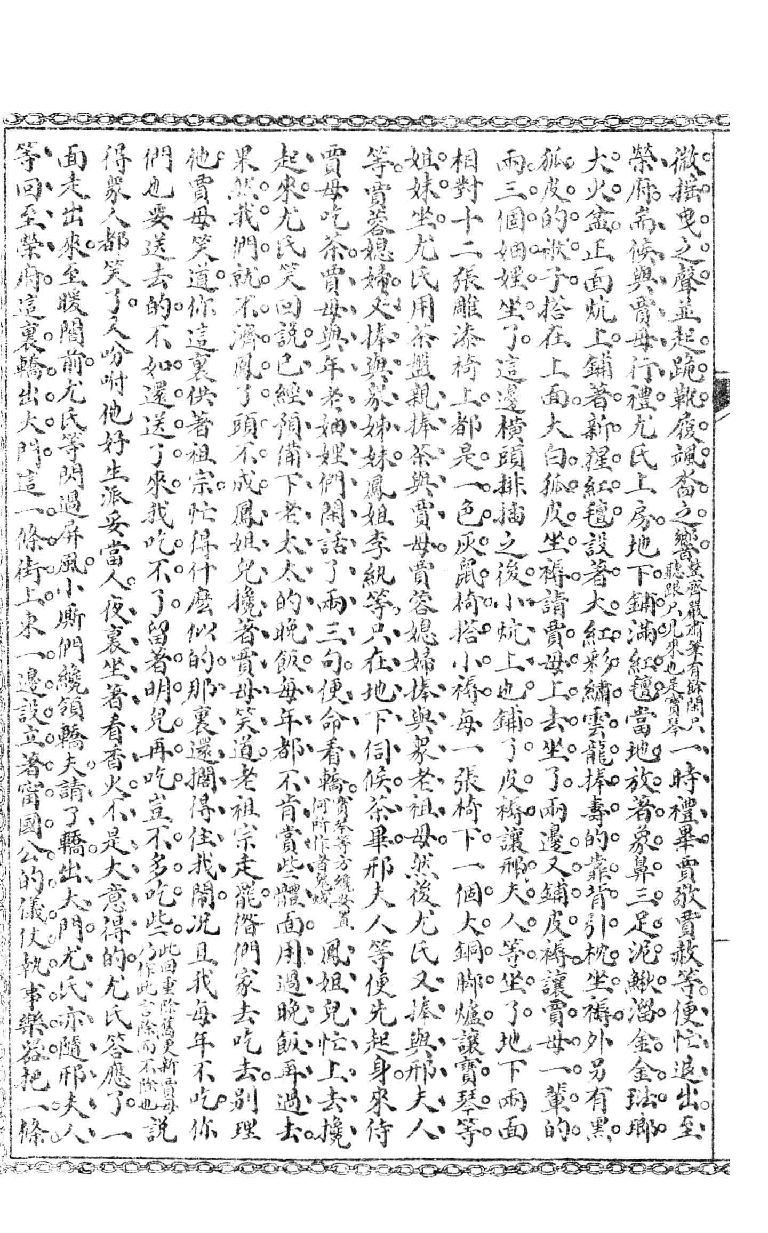 微搖曳之聲並起跪靴履颯沓之響一時禮畢賈敬賈赦等便忙退出至
榮府耑候與賈母行禮尤氏上房地下鋪滿紅毡當地放著象鼻三足泥鰍溜金金琺瑯
大火盆正面炕上鋪著新猩紅毡設著大紅彩繡雲龍捧壽的靠背引枕坐褥外另有黑
狐皮的袱子搭在上面大白狐皮坐褥請賈母上去坐了兩邊又鋪皮褥讓賈母一輩的
兩三個妯娌坐了這邊橫頭排插之後小炕上也鋪了皮褥讓邢夫人等坐了地下兩面
相對十二張雕漆椅上都是一色灰鼠椅搭小褥每一張椅下一個大銅腳爐讓寶琴等
姐妹坐尤氏用茶盤親捧茶與賈母賈蓉媳婦捧與眾老祖母然後尤氏又捧與邢夫人
等賈蓉媳婦又捧與眾姊妹鳳姐李紈等只在地下伺候茶畢邢夫人等便先起身來侍
賈母吃茶賈母與年老妯娌們閑話了兩三句便命看轎鳳姐兒忙上去攙
起來尤氏笑回說已經預備下老太太的晚飯每年都不肯賞些體面用過晚飯再過去
果然我們就不濟鳳丫頭不成鳳姐兒攙著賈母笑道老祖宗走罷偺們家去吃去別理
他賈母笑道你這裏供著祖宗忙得什麼似的那裏還擱得住我鬧况且我每年不吃你
們也要送去的不如還送了來我吃不了留著明兒再吃豈不多吃些此回重除舊更新賈母了作此言除而不除也說
得眾人都笑了又吩咐他好生派妥當人夜裏坐著看香火不是大意得的尤氏答應了一
面走出來至暖閣前尤氏等閃過屏風小廝們纔領轎夫請了轎出大門尤氏亦隨邢夫人
等回至榮府這裏轎出大門這一條街上東一邊設立著甯國公的儀仗執事樂器把一條